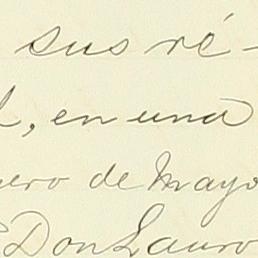 sus ré-
, en una
ero de Mayo
Don Lauro